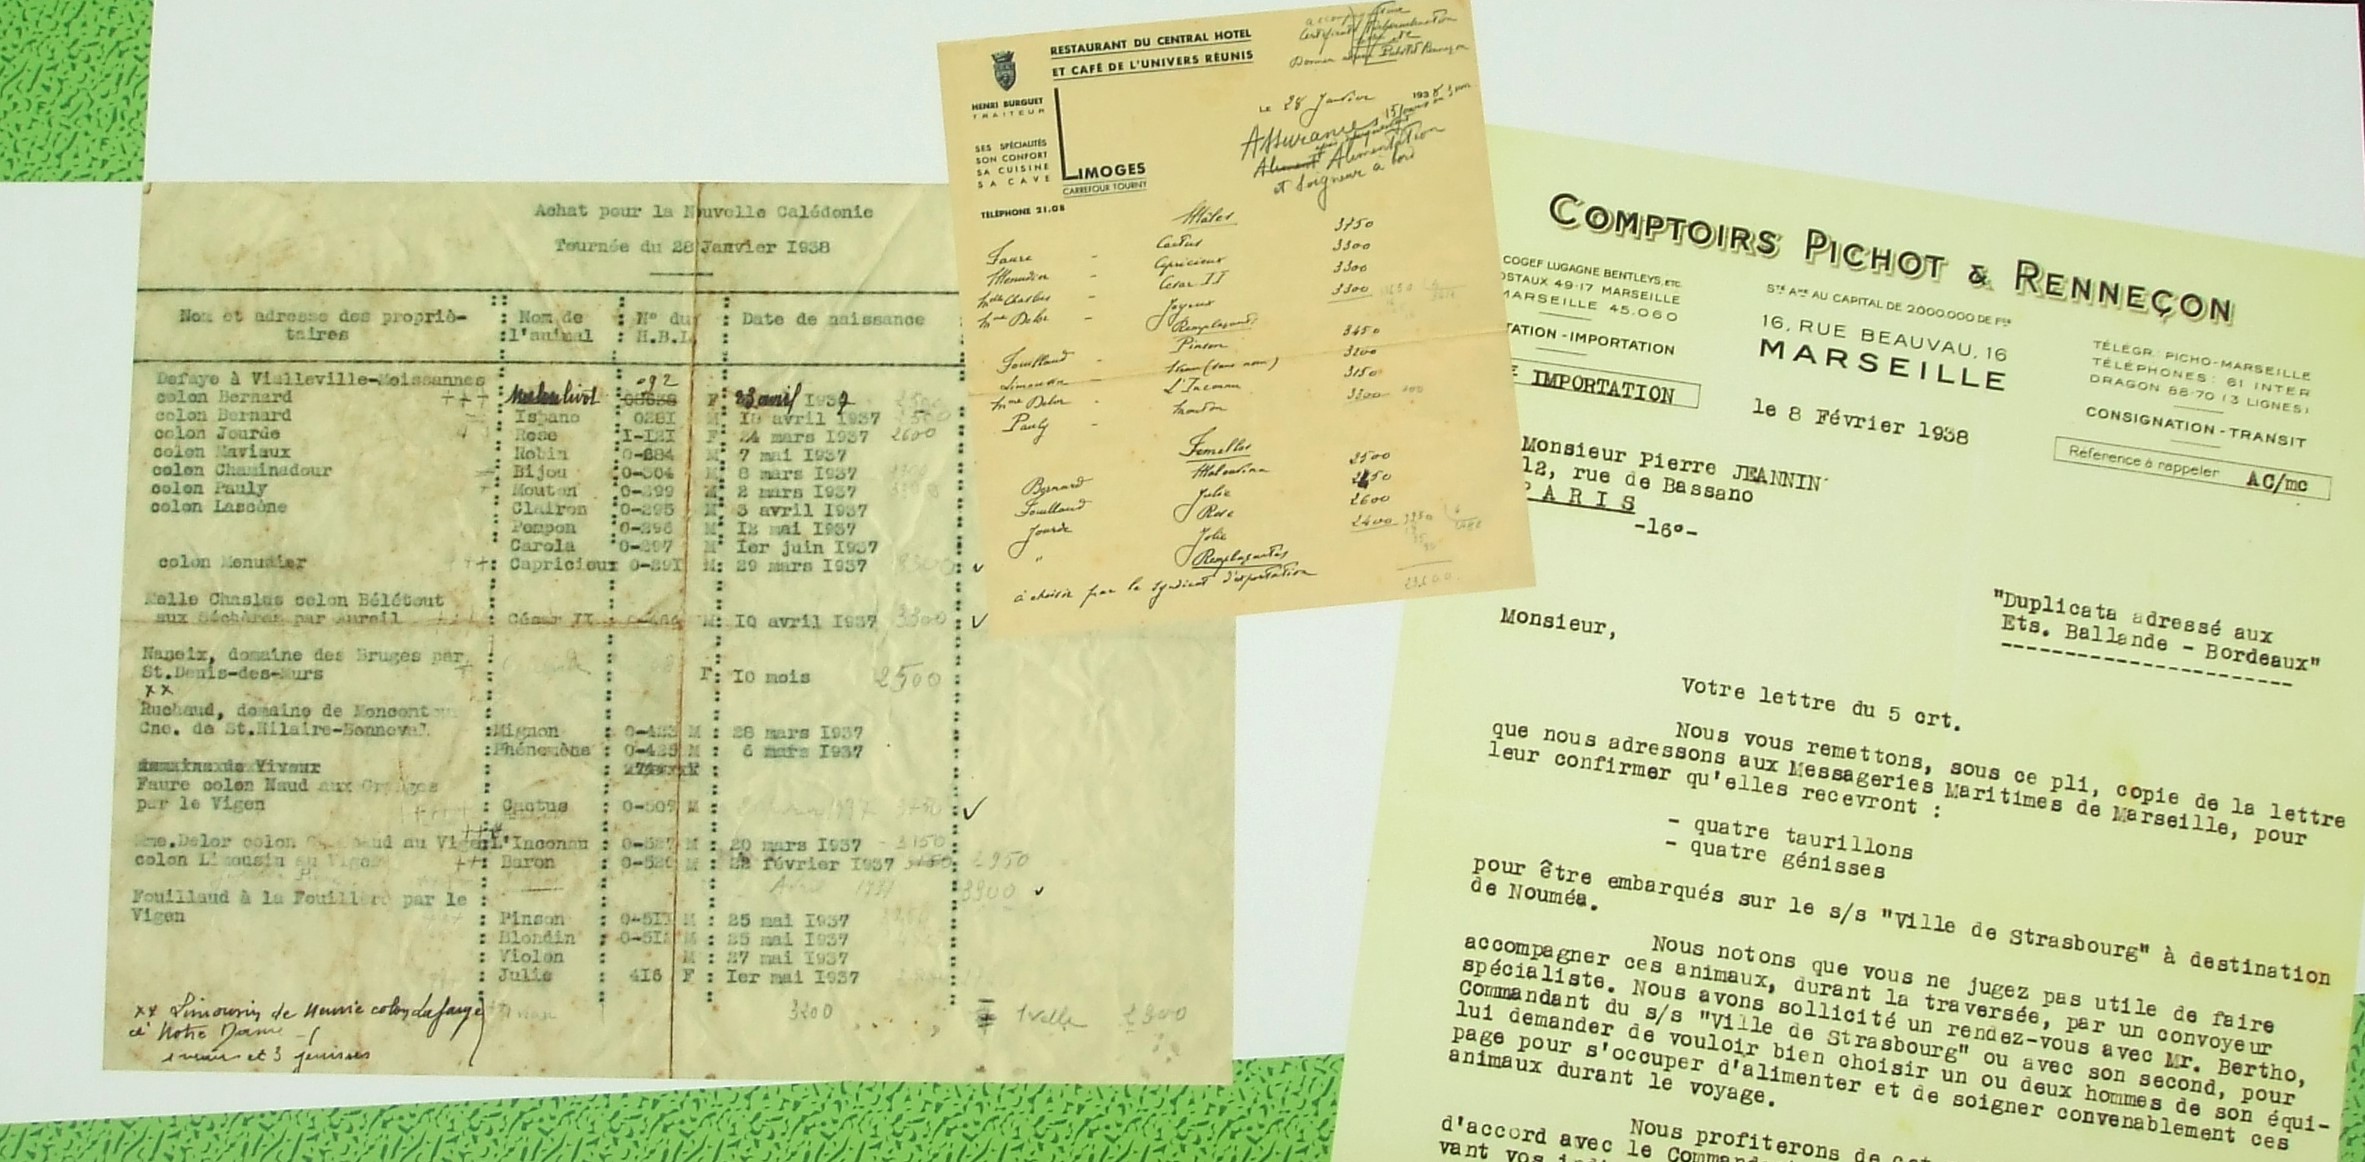 Achat pour la Nouvelle Calédonie
Tournée du 28 Janvier I938
Nom et adresse des propriè- : Nom de : N° du : Date de naissance
taires :l'animal : H.B.L :
Defaye à Vialleville-Moissannes
colon Bernard +++ 092 F 23 avril I937
colon Bernard Ispano 028I M I8 avril I937 3500
colon Jourde Rose I-I2I F 24 mars I937 2600
colon Maviaux Robin 0-284 M 7 mai I937
colon Chaminadour Bijou 0-304 M 8 mars I937
colon Pauly Mouton 0-299 M 2 mars I937
colon Lascône Clairon 0-295 M 3 avril I937
Pompon 0-296 M I2 mai I937
Carola 0-297 M Ier juin I937
colon Menudier ++: Capricieux 0-29I M: 29 mars I937 3300 ✓
Melle Chaslus colon Bélétout
aux Séchères par Aureil César II M: I0 avril I937 3300 ✓
Naneix, domaine des Bruges par
St.Denis-des-Murs + F: I0 mois 2500
xx
Ruchaud, domaine de Moncontour
Cne. de St.Hilaire-Bonneval :Mignon : 0-423 M : 28 mars I937
:Phénomène : 0-425 M : 6 mars I937
Faure colon Naud aux Granges
par le Vigen : Cactus : 0-507 M : ✓
Mme.Delor colon au Vigen:L'Inconnu : 0-527 M : 20 mars I937 3150
colon Limousin au Vigen ++: Baron : 0-526 M : 22 février I937 2950
3300 ✓
Fouillaud à la Fouillère par le
Vigen : Pinson : 0-5II M : 25 mai I937
: Blondin : 0-5I2 M : 25 mai I937
: Violon : M : 27 mai I937
: Julie : 4I6 F : Ier mai I937
3200
xx Limousin de Meunie colon Lafarge
à Notre Dame
et 3 génisses
RESTAURANT DU CENTRAL HOTEL
ET CAFÉ DE L'UNIVERS RÉUNIS
HENRI BURGUET
TRAITEUR
SES SPÉCIALITÉS
SON CONFORT
SA CUISINE
SA CAVE
LIMOGES
CARREFOUR TOURNY
TÉLÉPHONE 21.08
LE 28 Janvier 1938
Assurances 15 jours
Alimentation
et Soigneur à bord
Mâles
Faure - Cactus 3750
Menudier - Capricieux 3300
Melle Chaslus - César II 3300
Mme Delor - Joyeux 3300
Remplaçants
Fouillaud - Pinson 3450
Limousin - (sans nom) 3200
Mme Delor - L'Inconnu 3150
Pauly - Mouton 3300
Femelles
Bernard Malentina 2500
Fouillaud Julie
Jourde Rose 2600
" Jolie 2400
Remplaçantes
à choisir par le Syndicat d'exportation
COMPTOIRS PICHOT & RENNEÇON
COGEF LUGAGNE BENTLEYS, ETC.
OSTAUX 49-17 MARSEILLE
MARSEILLE 45.060
TATION - IMPORTATION
E IMPORTATION
STÉ AME AU CAPITAL DE 2.000.000 DE FRS
16, RUE BEAUVAU, 16
MARSEILLE
TÉLÉGR. PICHO-MARSEILLE
TÉLÉPHONES: 61 INTER
DRAGON 88-70 (3 LIGNES)
CONSIGNATION - TRANSIT
Référence à rappeler AC/mc
le 8 Février 1938
Monsieur Pierre JEANNIN
12, rue de Bassano
PARIS
-16°-
"Duplicata adressé aux
Ets. Ballande - Bordeaux"
Monsieur,
Votre lettre du 5 crt.
Nous vous remettons, sous ce pli, copie de la lettre
que nous adressons aux Messageries Maritimes de Marseille, pour
leur confirmer qu'elles recevront :
- quatre taurillons
- quatre génisses
pour être embarqués sur le s/s "Ville de Strasbourg" à destination
de Nouméa.
Nous notons que vous ne jugez pas utile de faire
accompagner ces animaux, durant la traversée, par un convoyeur
spécialiste. Nous avons sollicité un rendez-vous avec Mr. Bertho,
Commandant du s/s "Ville de Strasbourg" ou avec son second, pour
lui demander de vouloir bien choisir un ou deux hommes de son équi-
page pour s'occuper d'alimenter et de soigner convenablement ces
animaux durant le voyage.
Nous profiterons de
d'accord avec le
vant vos